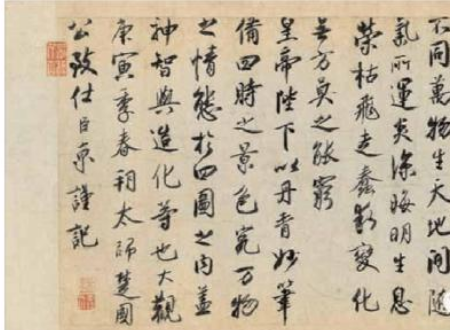 不同萬物生天地間隨
氣所運炎涼晦明生息
榮枯飛走蠢動變化
無方莫之能窮
皇帝陛下以丹青妙筆
備四時之景色究万物
之情態於四圖之內蓋
神智與造化等也大觀
庚寅季春朔太師楚國
公致仕臣京謹記